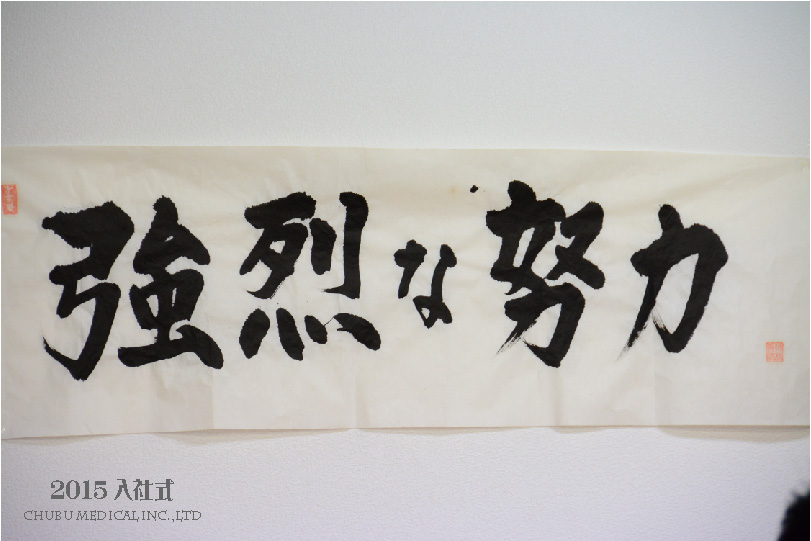 強烈な努力
2015 入社式
CHUBU MEDICAL,INC.,LTD